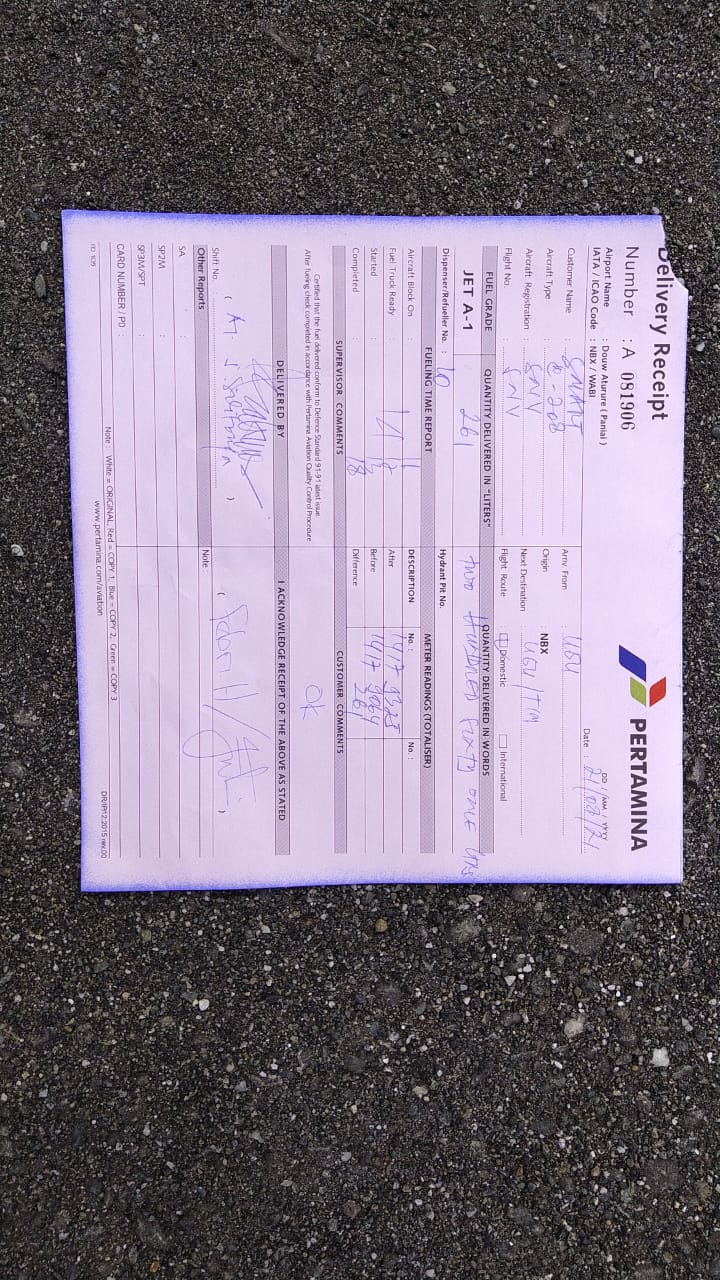 Delivery Receipt
PERTAMINA
Number : A 081906
DD / MM / YYYY
Date :
Airport Name : Douw Aturure ( Paniai )
IATA / ICAO Code : NBX / WABI
Customer Name : SMART
Arriv. From : UGU
Aircraft Type : C-208
Origin : NBX
Aircraft Registration : SNV
Next Destination : UGU/TIM
Flight No. : SNV
Flight Route : Domestic International
FUEL GRADE QUANTITY DELIVERED IN "LITERS" QUANTITY DELIVERED IN WORDS
JET A-1 261 two Hundred sixty one
Dispenser/Refueller No. : 10
Hydrant Pit No.
FUELING TIME REPORT METER READINGS (TOTALISER)
Aircraft Block On :
DESCRIPTION No. : No. :
Fuel Truck Ready :
After
Started :
Before
Completed :
Difference 261
SUPERVISOR COMMENTS CUSTOMER COMMENTS
Certified that the fuel delivered conform to Defence Standard 91-91 latest issue.
After fueling check completed in accordance with Pertamina Aviation Quality Control Procedure
OK
DELIVERED BY I ACKNOWLEDGE RECEIPT OF THE ABOVE AS STATED
Shift No.
Other Reports Note :
SA :
SP2M :
SP3M/SPT :
CARD NUMBER / PO :
Note : White = ORIGINAL, Red = COPY 1, Blue = COPY 2, Green = COPY 3
www.pertamina.com/aviation
ITD 105
DR/IP12.2015 rev.00